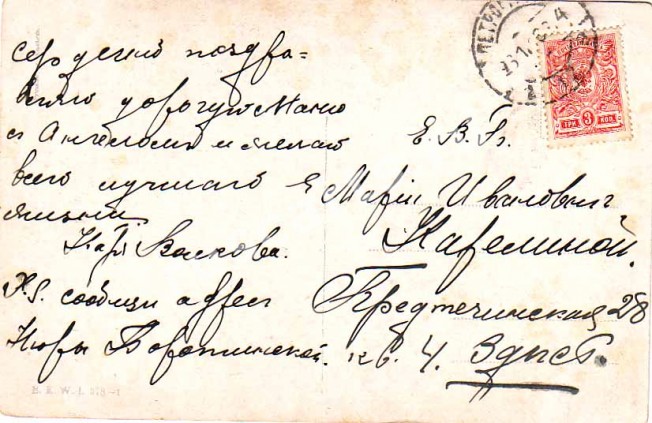 сердечно поздра=
вляю дорогую Маню
с Ангелом и желаю
всего лучшаго в
жизни
Катя Васкова.
P.S. сообщи адрес
Нюры Воротинской.
Е. В. Б.
Марiи Ивановне
Кафелиной.
Предтечинская 28
кв. 4. Здѣсь.
ПЕТРОГР
ТРИ 3 КОП